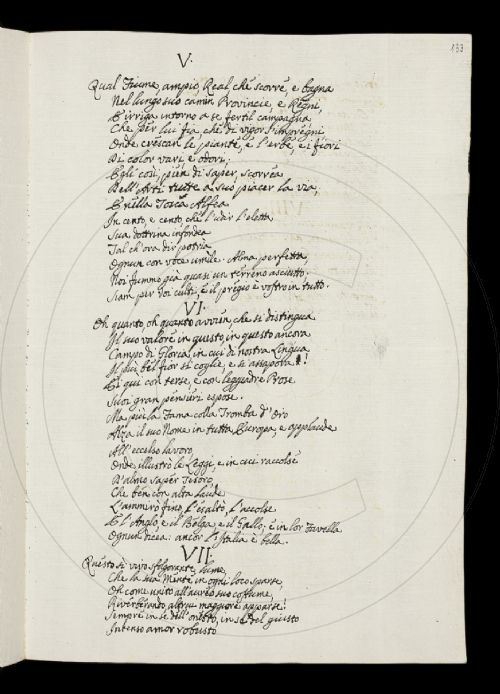 133
V.
Qual Fiume, ampio, Real che scorre, e bagna
Nel lungo suo camin Provincie, e Regni,
E irriga intorno a se fertil campagna
Che per lui fia, che di vigor s'impregni
Onde crescan le piante, e l'erbe, e i fiori
Di color vari, e odori;
Egli così, pien di saper, scorrea
Dell'Arti tutte a suo piacer la via,
E nella Tosca Alfea
In cento, e cento, che l'udir l'eletta
Sua dottrina infondea
Tal ch'ora dir potria
Ognun con voce umile: Alma perfetta
Noi fummo già quasi un terreno asciutto.
Siam per voi culti, e il pregio è vostro in tutto.
VI.
Oh quanto, oh quanto avvien, che si distingua
Il suo valore in questo, in questo ancora
Campo di Gloria, in cui di nostra Lingua
Il più bel fior si coglie, e si assapora!
Ei qui con terse, e con leggiadre Prose
Suoi gran pensieri espose.
Ma più la Fama colla Tromba d'Oro
Alza il suo Nome in tutta Europa, e applaude
All'eccelso lavoro,
Onde, illustrò le Leggi, e in cui raccolse
D'almo saper Tesoro,
Che ben con alta laude
L'ammirò fino, l'esaltò, l'accolse
E l'Anglo, e il Belga, e il Gallo; e in lor Favella
Ognun dicea: ancor l'Italia è bella.
VII.
Questo sì vivo sfolgorante lume,
Che la sua Mente in ogni loco sparse,
Oh come unito all'aureo suo costume,
Riverberando, altrui maggiore apparse!
Sempre in se dell'onesto, in se del giusto
Intenso amor robusto